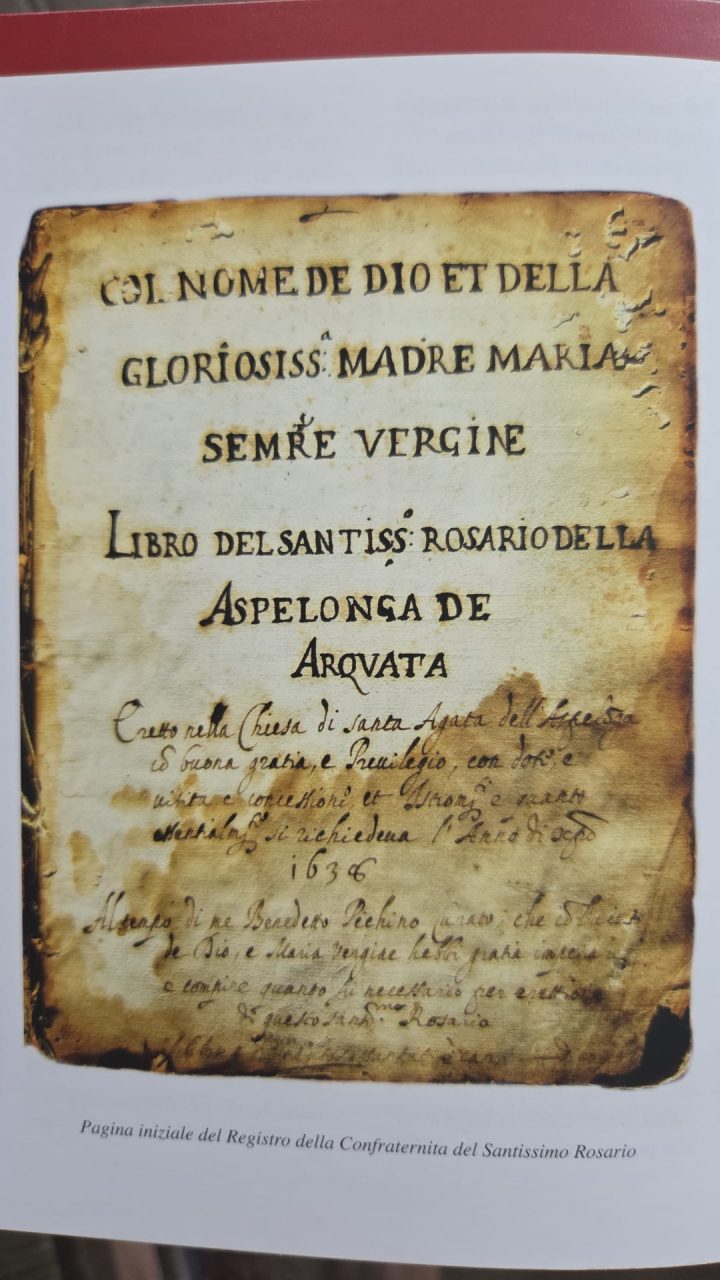 COL NOME DE DIO ET DELLA
GLORIOSISS:ᵃ MADRE MARIA
SEMPRE VERGINE
LIBRO DEL SANTISS:º ROSARIO DELLA
ASPELONGA DE
ARQVATA
Eretto nella Chiesa di santa Agata dell'
cõ buona gratia, e Preuilegio, con e
uisita e et e quanto
si richiedeua l'Anno di
1636
Al tempo di me Benedetto Pechino Curato, che cõ
de Dio, e Maria Vergine hebbi gratia
e compire quanto fu necessario per erettione
di questo Rosario
Pagina iniziale del Registro della Confraternita del Santissimo Rosario